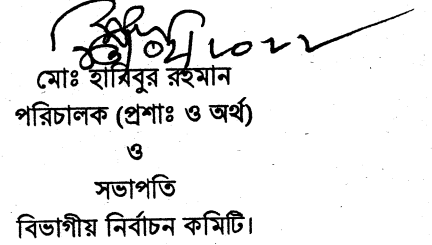 মোঃ হাবিবুর রহমান
পরিচালক (প্রশাঃ ও অর্থ)
ও
সভাপতি
বিভাগীয় নির্বাচন কমিটি।